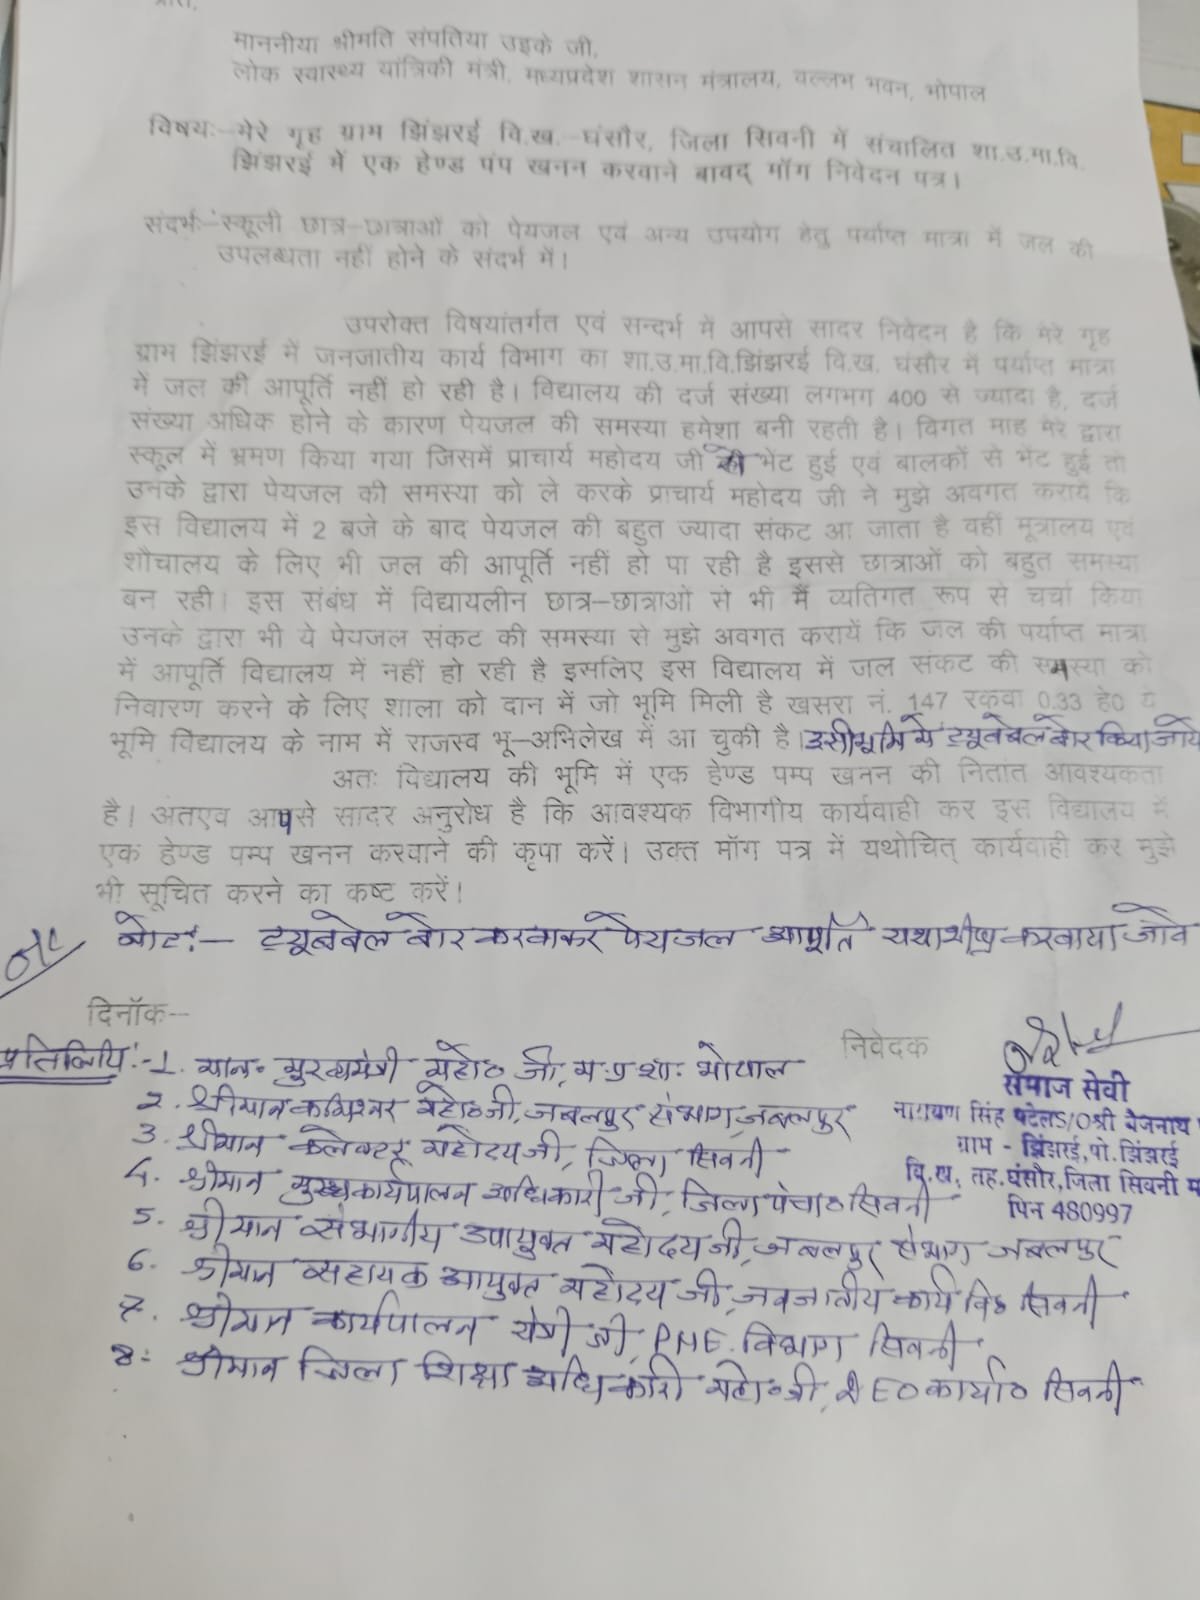 प्रति,
माननीया श्रीमति संपतिया उइके जी,
लोक स्वास्थ्य यांत्रिकी मंत्री, मध्यप्रदेश शासन मंत्रालय, वल्लभ भवन, भोपाल
विषयः–मेरे गृह ग्राम झिंझरई वि.ख.–घंसौर, जिला सिवनी में संचालित शा.उ.मा.वि.
झिंझरई में एक हेण्ड पंप खनन करवाने बावद् मॉग निवेदन पत्र।
संदर्भः–स्कूली छात्र–छात्राओं को पेयजल एवं अन्य उपयोग हेतु पर्याप्त मात्रा में जल की
उपलब्धता नहीं होने के संदर्भ में।
उपरोक्त विषयांतर्गत एवं सन्दर्भ में आपसे सादर निवेदन है कि मेरे गृह
ग्राम झिंझरई में जनजातीय कार्य विभाग का शा.उ.मा.वि.झिंझरई वि.ख. घंसौर में पर्याप्त मात्रा
में जल की आपूर्ति नहीं हो रही है। विद्यालय की दर्ज संख्या लगभग 400 से ज्यादा है, दर्ज
संख्या अधिक होने के कारण पेयजल की समस्या हमेशा बनी रहती है। विगत माह मेरे द्वारा
स्कूल में भ्रमण किया गया जिसमें प्राचार्य महोदय जी से भेंट हुई एवं बालकों से भेंट हुई तो
उनके द्वारा पेयजल की समस्या को ले करके प्राचार्य महोदय जी ने मुझे अवगत करायें कि
इस विद्यालय में 2 बजे के बाद पेयजल की बहुत ज्यादा संकट आ जाता है वहीं मूत्रालय एवं
शौचालय के लिए भी जल की आपूर्ति नहीं हो पा रही है इससे छात्राओं को बहुत समस्या
बन रही। इस संबंध में विद्यायलीन छात्र–छात्राओं से भी मैं व्यतिगत रूप से चर्चा किया
उनके द्वारा भी ये पेयजल संकट की समस्या से मुझे अवगत करायें कि जल की पर्याप्त मात्रा
में आपूर्ति विद्यालय में नहीं हो रही है इसलिए इस विद्यालय में जल संकट की समस्या को
निवारण करने के लिए शाला को दान में जो भूमि मिली है खसरा नं. 147 रकवा 0.33 हे0 ये
भूमि विद्यालय के नाम में राजस्व भू–अभिलेख में आ चुकी है। उसी भूमि में ट्यूबवेल बोर किया जाये
अतः विद्यालय की भूमि में एक हेण्ड पम्प खनन की नितांत आवश्यकता
है। अतएव आपसे सादर अनुरोध है कि आवश्यक विभागीय कार्यवाही कर इस विद्यालय में
एक हेण्ड पम्प खनन करवाने की कृपा करें। उक्त मॉग पत्र में यथोचित् कार्यवाही कर मुझे
भी सूचित करने का कष्ट करें।
नोट:– ट्यूबवेल बोर करवाकर पेयजल आपूर्ति यथाशीघ्र करवाया जावे
दिनॉक–
निवेदक
प्रतिलिपि:-1. मान॰ मुख्यमंत्री महो॰ जी, म.प्र.शा. भोपाल
2. श्रीमान कमिश्नर महो॰जी, जबलपुर संभाग, जबलपुर
3. श्रीमान कलेक्टर महोदय जी, जिला सिवनी
4. श्रीमान मुख्यकार्यपालन अधिकारी जी, जिला पंचा॰ सिवनी
5. श्रीमान संभागीय उपायुक्त महोदय जी, जबलपुर संभाग जबलपुर
6. श्रीमान सहायक आयुक्त महोदय जी, जनजातीय कार्य वि॰ सिवनी
7. श्रीमान कार्यपालन यंत्री जी, PHE. विभाग सिवनी
8. श्रीमान जिला शिक्षा अधिकारी महो॰जी, DEO कार्या॰ सिवनी
समाज सेवी
नारायण सिंह पटेल S/O श्री बेजनाथ
ग्राम - झिंझरई, पो. झिंझरई
वि.ख., तह. घंसौर, जिला सिवनी म
पिन 480997